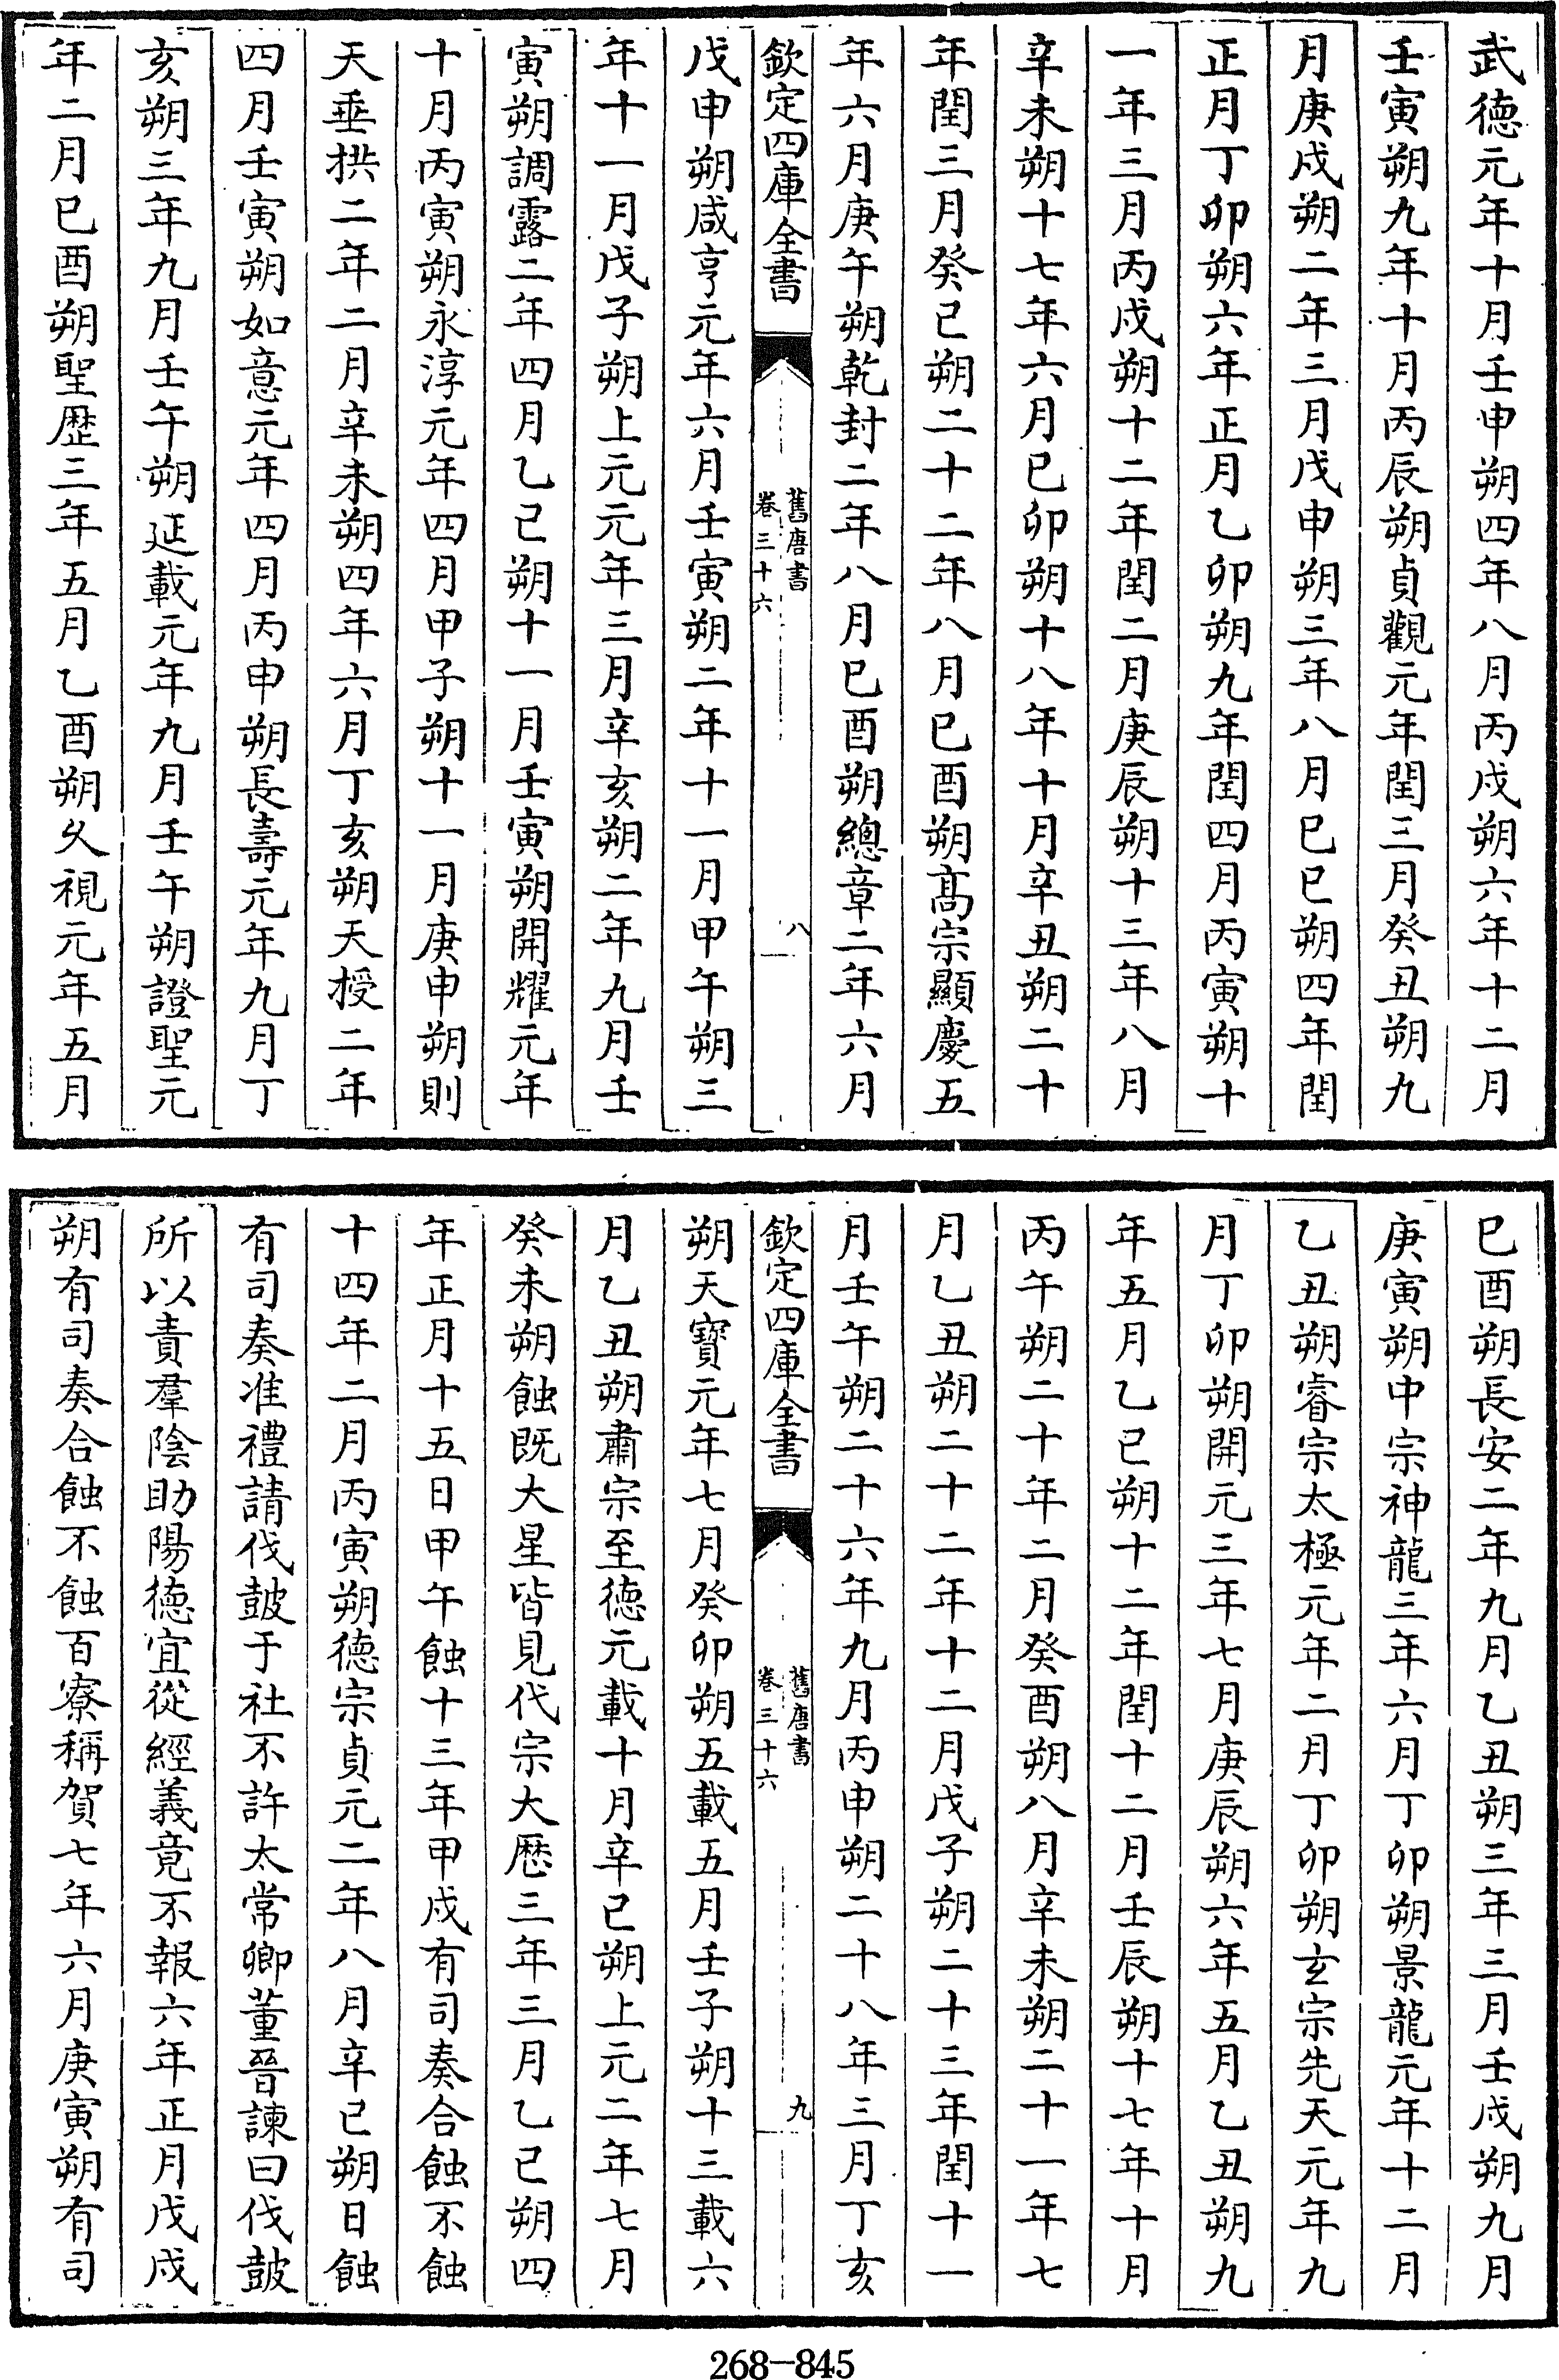 武德元年十月壬申朔四年八月丙戌朔六年十二月
壬寅朔九年十月丙辰朔貞觀元年閏三月癸丑朔九
月庚戌朔二年三月戊申朔三年八月己巳朔四年閏
正月丁卯朔六年正月乙卯朔九年閏四月丙寅朔十
一年三月丙戌朔十二年閏二月庚辰朔十三年八月
辛未朔十七年六月己卯朔十八年十月辛丑朔二十
年閏三月癸巳朔二十二年八月己酉朔髙宗顯慶五
年六月庚午朔乾封二年八月己酉朔總章二年六月
欽定四庫全書
舊唐書
卷三十六
八
戊申朔咸亨元年六月壬寅朔二年十一月甲午朔三
年十一月戊子朔上元元年三月辛亥朔二年九月壬
寅朔調露二年四月乙巳朔十一月壬寅朔開耀元年
十月丙寅朔永淳元年四月甲子朔十一月庚申朔則
天垂拱二年二月辛未朔四年六月丁亥朔天授二年
四月壬寅朔如意元年四月丙申朔長壽元年九月丁
亥朔三年九月壬午朔延載元年九月壬午朔證聖元
年二月己酉朔聖歴三年五月乙酉朔乆視元年五月
己酉朔長安二年九月乙丑朔三年三月壬戌朔九月
庚寅朔中宗神龍三年六月丁卯朔景龍元年十二月
乙丑朔睿宗太極元年二月丁卯朔玄宗先天元年九
月丁卯朔開元三年七月庚辰朔六年五月乙丑朔九
年五月乙巳朔十二年閏十二月壬辰朔十七年十月
丙午朔二十年二月癸酉朔八月辛未朔二十一年七
月乙丑朔二十二年十二月戊子朔二十三年閏十一
月壬午朔二十六年九月丙申朔二十八年三月丁亥
欽定四庫全書
舊唐書
卷三十六
九
朔天寶元年七月癸卯朔五載五月壬子朔十三載六
月乙丑朔肅宗至德元載十月辛巳朔上元二年七月
癸未朔蝕既大星皆見代宗大歴三年三月乙巳朔四
年正月十五日甲午蝕十三年甲戌有司奏合蝕不蝕
十四年二月丙寅朔德宗貞元二年八月辛巳朔日蝕
有司奏准禮請伐鼓于社不許太常卿董晉諫曰伐鼓
所以責羣陰助陽德宜從經義竟不報六年正月戊戌
朔有司奏合蝕不蝕百寮稱賀七年六月庚寅朔有司
268-845